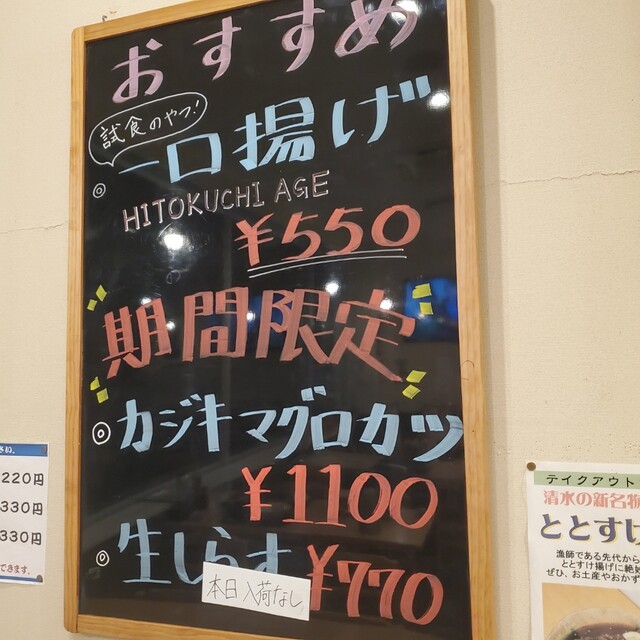 おすすめ
試食のやつ!
◎一口揚げ
HITOKUCHI AGE
¥550
期間限定
◎カジキマグロカツ
¥1100
◎生しらす ¥770
本日入荷なし
さい。
220円
330円
330円
できます。
テイクアウト
清水の新名物
ととすけ
漁師である先代から
ととすけ揚げに絶妙
ぜひ、お土産やおかず